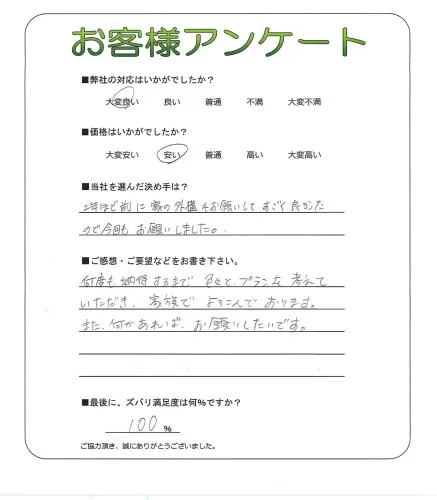 お客様アンケート
■弊社の対応はいかがでしたか？
大変良い 良い 普通 不満 大変不満
■価格はいかがでしたか？
大変安い 安い 普通 高い 大変高い
■当社を選んだ決め手は？
2年ほど前に家の外構をお願いしてすごく良かった
ので今回もお願いしました。
■ご感想・ご要望などをお書き下さい。
何度も納得するまで色々と、プランな考えて
いただき、家族でよろこんでおります。
また、何かあれば、お願いしたいです。
■最後に、ズバリ満足度は何％ですか？
100 ％
ご協力頂き、誠にありがとうございました。